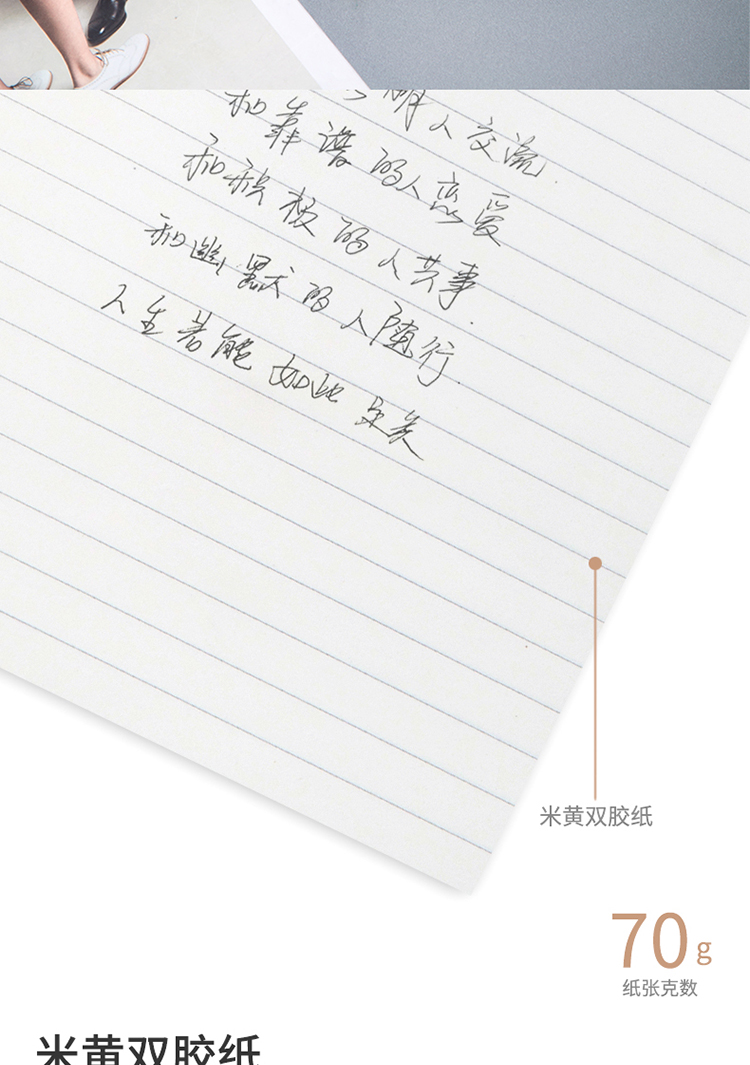 明人交流.
和靠谱的人恋爱
和积极的人共事.
和幽默的人随行.
人生若能如此
米黄双胶纸
70g
纸张克数
米黄双胶纸